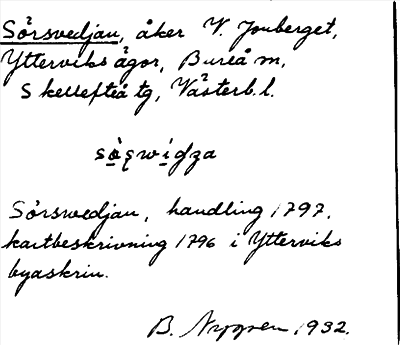 Sörsvedjan, åker V. Jonberget,
Ytterviks ägor, Bureå m,
Skellefteå tg, Västerb. l.
Sörsvedjan, handling 1797.
kartbeskrivning 1796 i Ytterviks
byaskrin.
B. Nygren 1932.